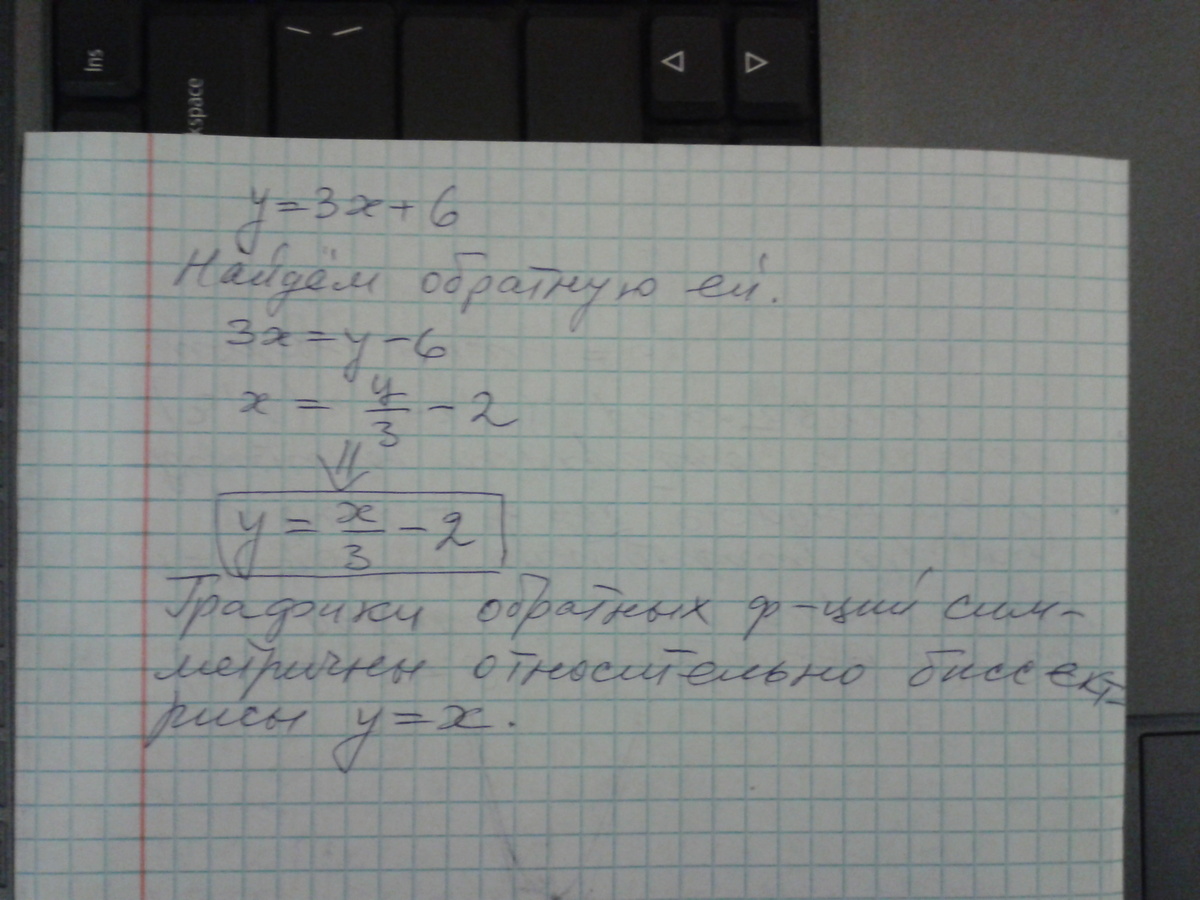 Ins
kspace
y=3x+6
Найдём обратную ей.
3x=y-6
x = y/3 - 2
⇓
y = x/3 - 2
Графики обратных ф-ций сим-
метричны относительно биссект-
рисы y=x.